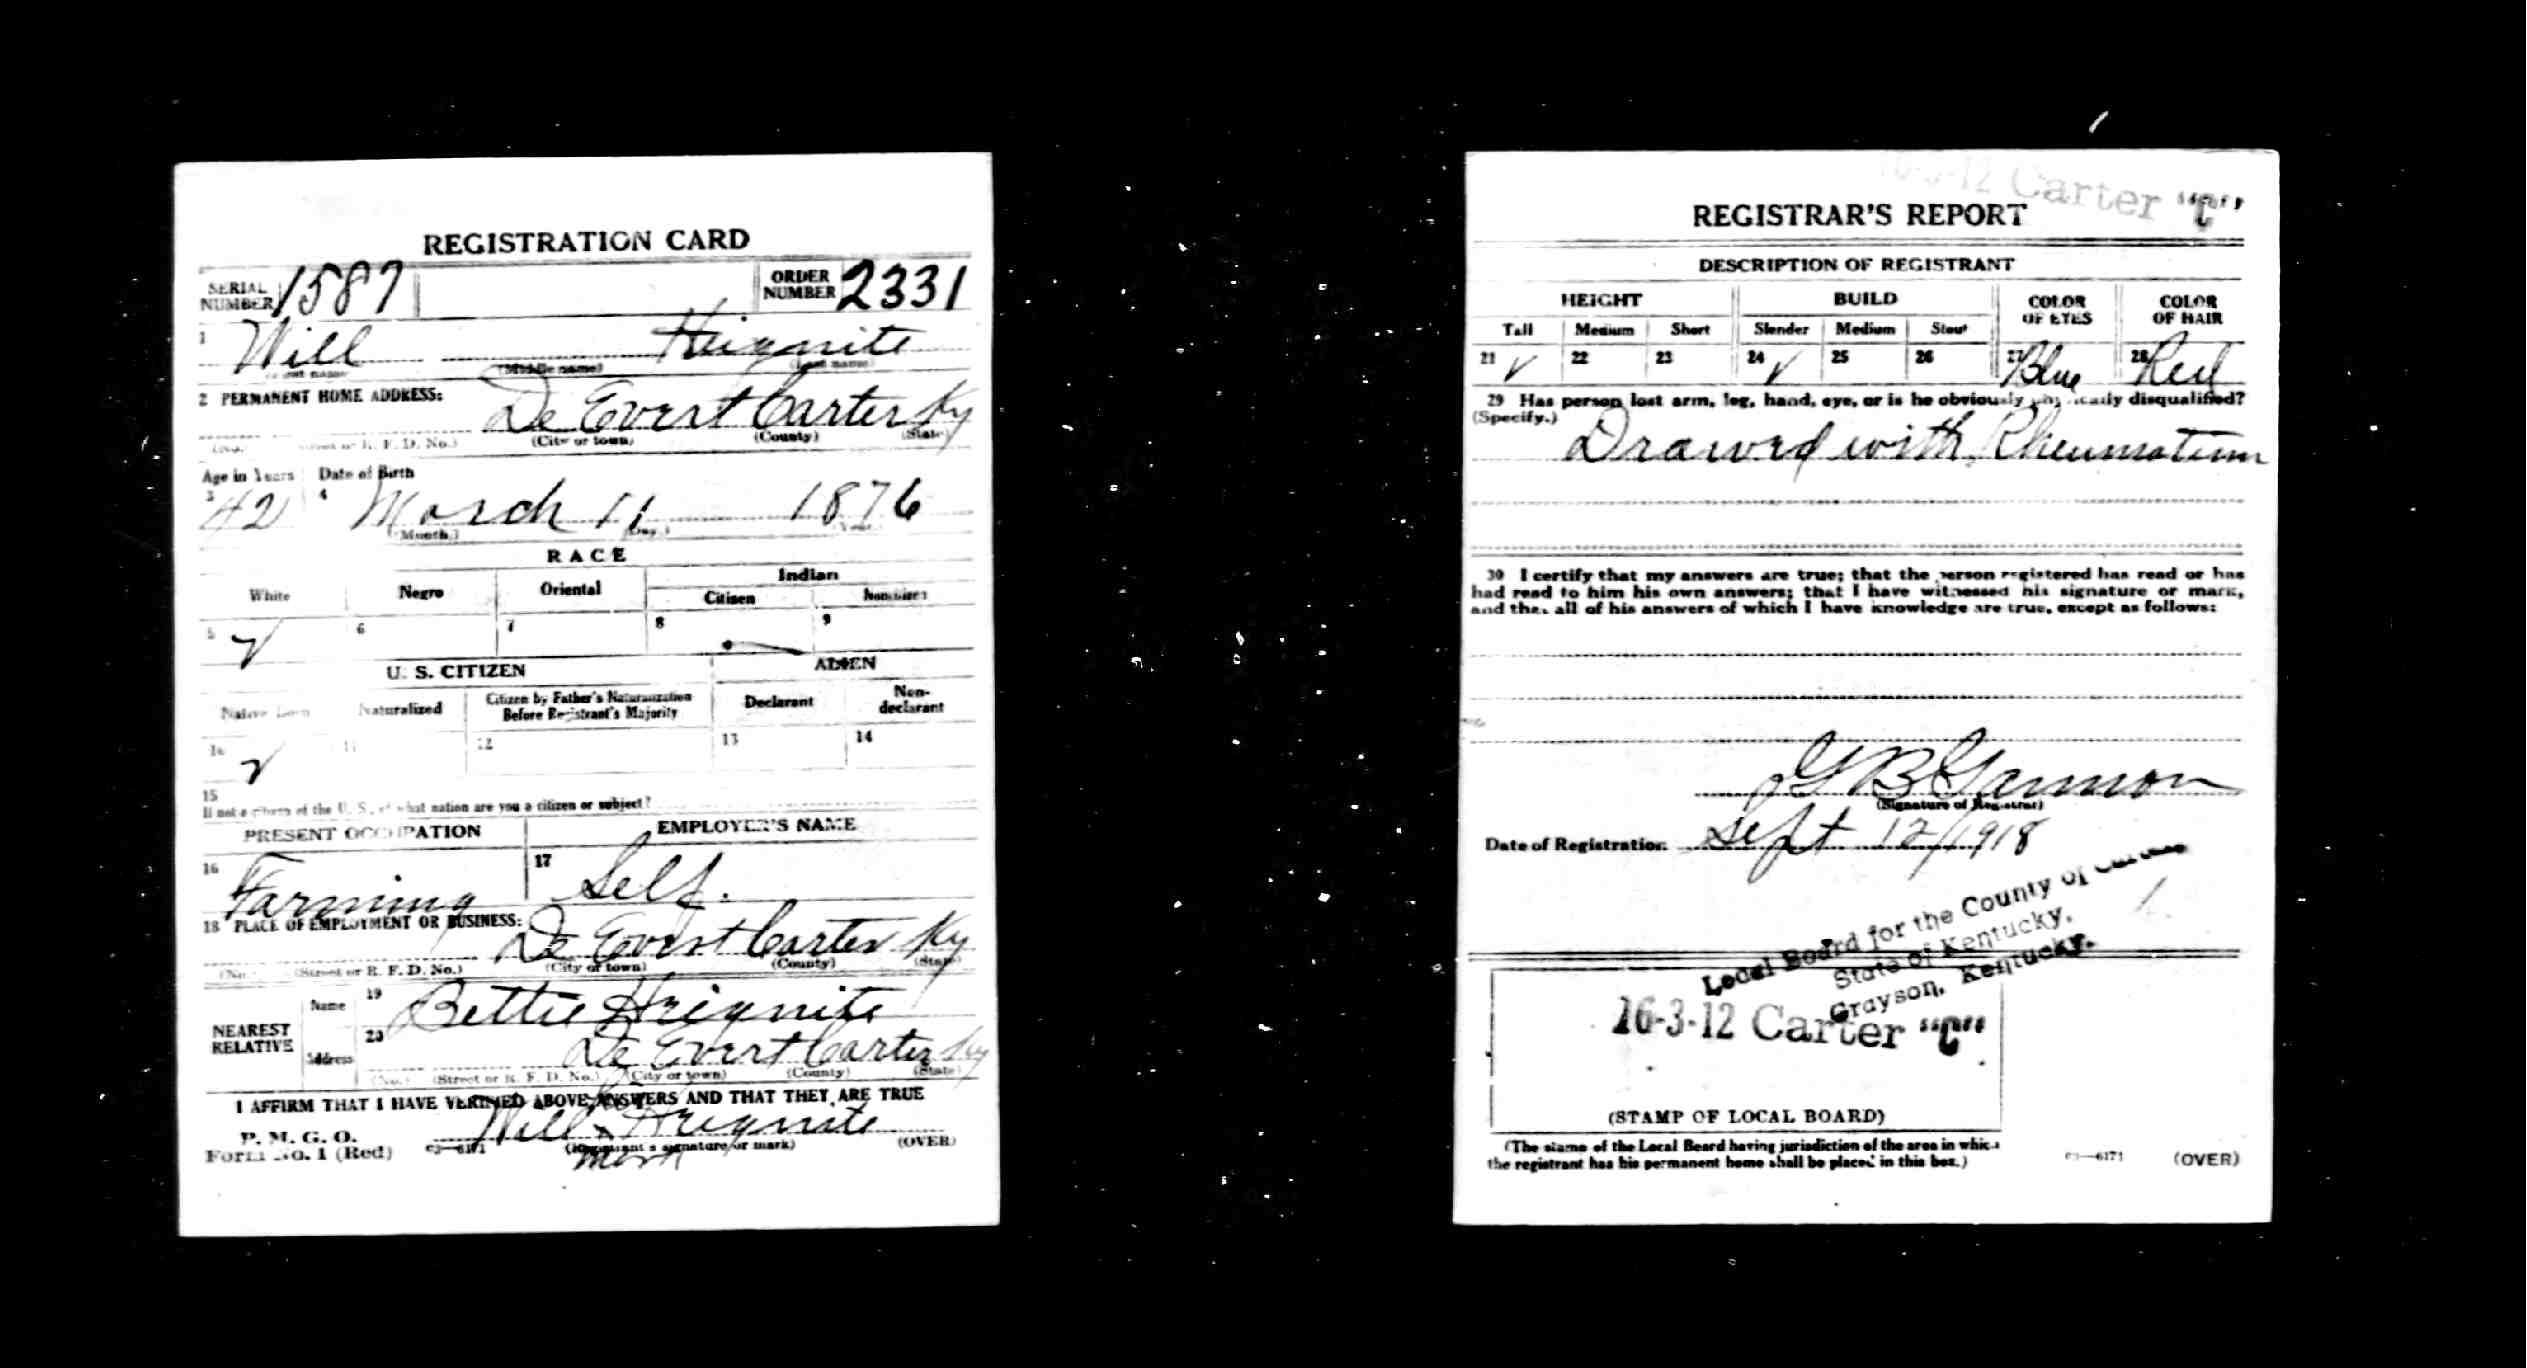 REGISTRATION CARD
SERIAL NUMBER 1587 ORDER NUMBER 2331
1 Will Heignite
(First name) (Middle name) (Last name)
2 PERMANENT HOME ADDRESS: De Evert Carter Ky
(No.) (Street or R. F. D. No.) (City or town) (County) (State)
Age in Years Date of Birth
3 42 4 March 11 1876
(Month) (Day) (Year)
RACE
White Negro Oriental Indian
Citizen Noncitizen
5 ✓ 6 7 8 9
U. S. CITIZEN ALIEN
Native Born Naturalized Citizen by Father's Naturalization Before Registrant's Majority Declarant Non-declarant
10 ✓ 11 12 13 14
15
If not a citizen of the U. S., of what nation are you a citizen or subject?
PRESENT OCCUPATION EMPLOYER'S NAME
16 Farming 17 Self.
18 PLACE OF EMPLOYMENT OR BUSINESS: De Evert Carter Ky
(No.) (Street or R. F. D. No.) (City or town) (County) (State)
NEAREST RELATIVE Name 19 Bettie Heignite
Address 20 De Evert Carter Ky
(No.) (Street or R. F. D. No.) (City or town) (County) (State)
I AFFIRM THAT I HAVE VERIFIED ABOVE ANSWERS AND THAT THEY ARE TRUE
P. M. G. O.
Form No. 1 (Red) 03—6171 Will x Heignite (OVER)
(Registrant's signature or mark)
mark
16-3-12 Carter "C"
REGISTRAR'S REPORT
DESCRIPTION OF REGISTRANT
HEIGHT BUILD COLOR OF EYES COLOR OF HAIR
Tall Medium Short Slender Medium Stout
21 ✓ 22 23 24 ✓ 25 26 27 Blue 28 Red
29 Has person lost arm, leg, hand, eye, or is he obviously physically disqualified?
(Specify.)
Drawed with Rheumatism
30 I certify that my answers are true; that the person registered has read or has
had read to him his own answers; that I have witnessed his signature or mark,
and that all of his answers of which I have knowledge are true, except as follows:
G B Gammon
(Signature of Registrar)
Date of Registration Sept 12/1918
Local Board for the County of Carter
State of Kentucky,
Grayson, Kentucky.
16-3-12 Carter "C"
(STAMP OF LOCAL BOARD)
(The stamp of the Local Board having jurisdiction of the area in which
the registrant has his permanent home shall be placed in this box.)
03—6171 (OVER)